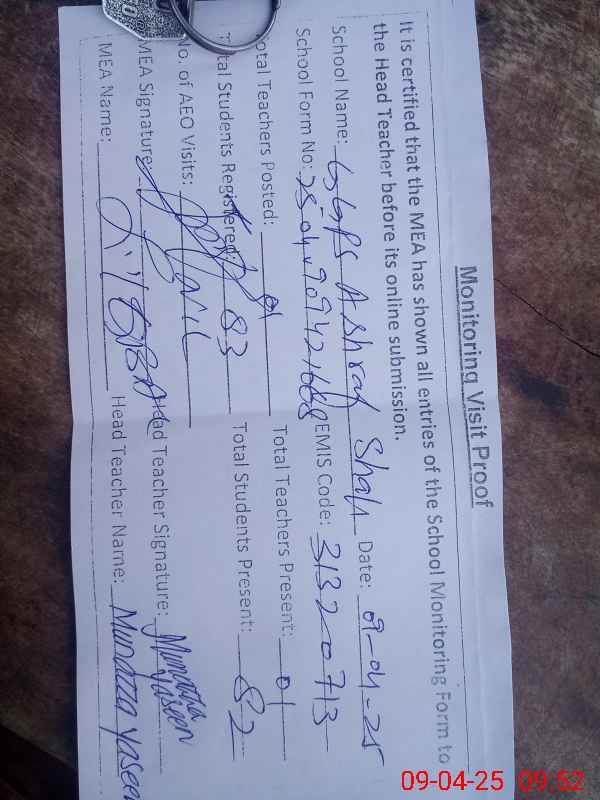 Monitoring Visit Proof
It is certified that the MEA has shown all entries of the School Monitoring Form to
the Head Teacher before its online submission.
School Name: GGPS Ashraf Shah Date: 09-04-25
School Form No: EMIS Code: 31320713
otal Teachers Posted: 01 Total Teachers Present: 01
tal Students Registered: 83 Total Students Present: 82
No. of AEO Visits: Nil
MEA Signature: Head Teacher Signature: Mundazza Yaseen
MEA Name: Head Teacher Name: Mundazza Yaseen
09-04-25 09:52